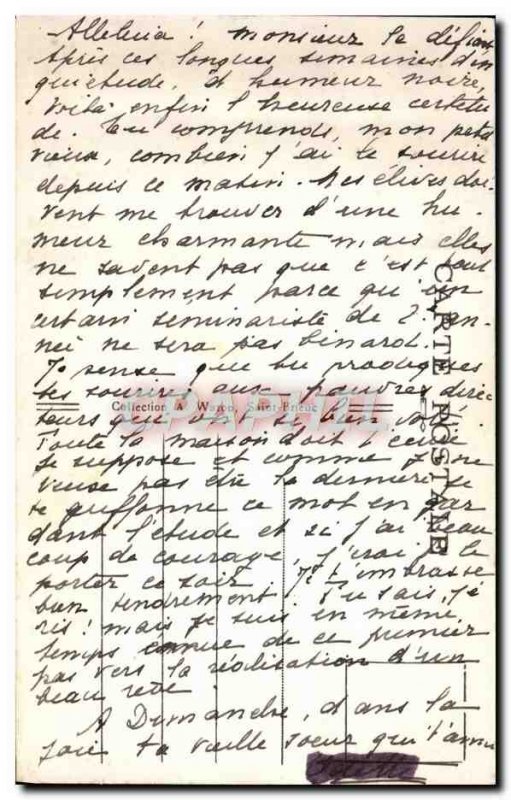 Alleluia ! monsieur le défiant
Après ces longues semaines d'in
quiétude, d'humeur noire,
voilà enfin l'heureuse certitu
de. Tu comprends, mon petit
vieux, combien j'ai le sourire
depuis ce matin. Mes élèves doi-
vent me trouver d'une hu-
meur charmante mais elles
ne savent pas que c'est tout
simplement parce qu'un
certain séminariste de 2e an-
née ne sera pas
Je pense que tu prodigues
tes sourires aux pauvres direc
teurs qui ont si bien voté.
Collection A Waron, Saint-Brieuc
CARTE POSTALE
Toute la maison doit t'écrire
je suppose et comme je ne
veux pas être la dernière je
te griffonne ce mot en gar
dant l'étude et si j'ai beau
coup de courage, j'irai le
porter ce soir. Je t'embrasse
bien tendrement. Tu sais, je
ris ! mais je suis en même
temps émue de ce premier
pas vers la réalisation d'un
beau rêve
A Dimanche, dans la
joie ta vieille soeur qui t'aime